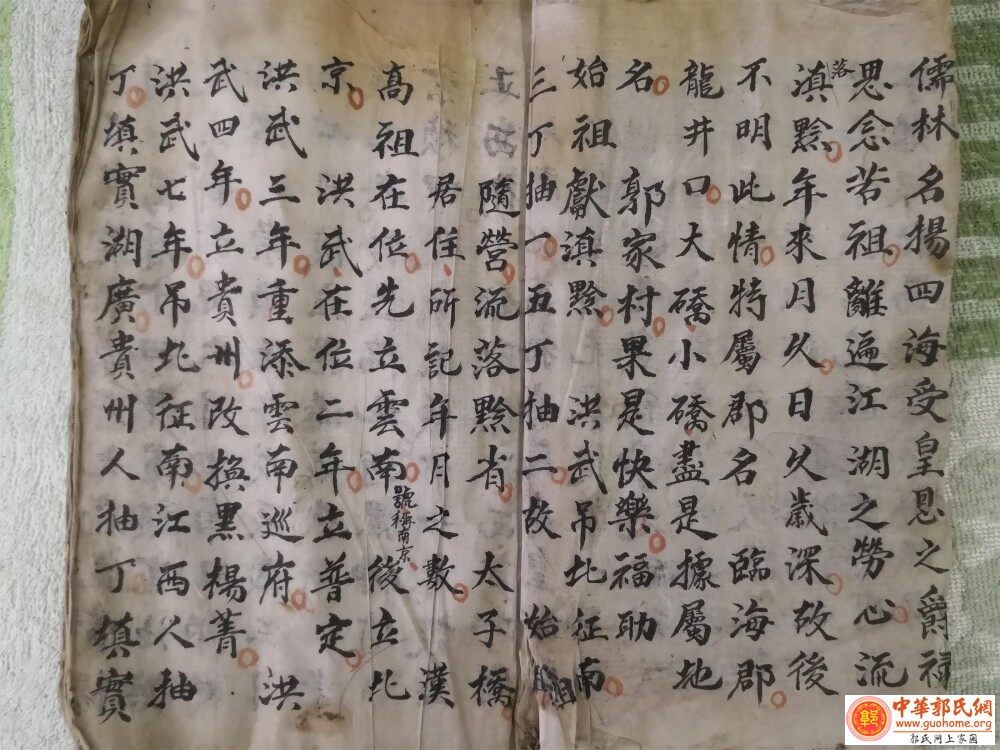 儒林名揚四海受皇恩之爵禄
思念若祖離遍江湖之勞心流
落滇黔年來月久日久歲深故後
不明此情特屬郡名臨海郡
龍井口大礄小礄盡是據屬地
名郭家村果是快樂福助
始祖獻滇黔洪武吊北征南
三丁抽一五丁抽二故始祖
隨營流落黔省太子橋
居住所記年月之數漢
高祖在位先立雲南號稱南京後立北
京洪武在位二年立普定
洪武三年重添雲南巡府洪
武四年立貴州改換黑楊箐
洪武七年吊北征南江西人抽
丁填實湖廣貴州人抽丁填實
中華郭氏網
www.guohome.org
郭氏网上家园